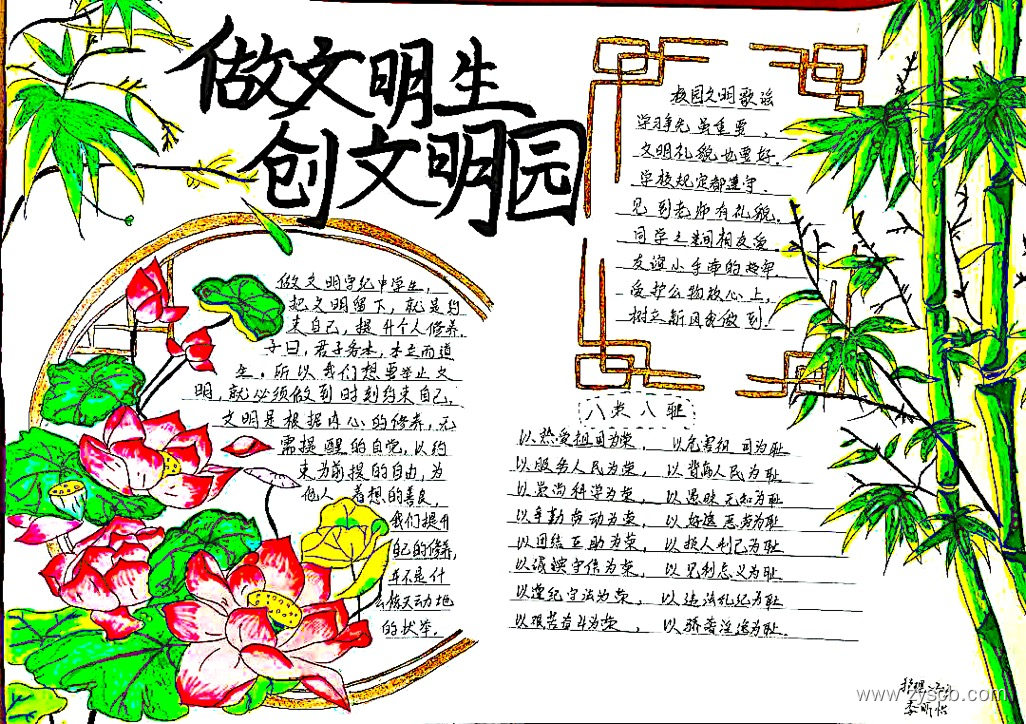 做文明生
创文明园
校园文明歌谣
学习争先虽重要,
文明礼貌也要好.
学校规定都遵守.
见到老师有礼貌.
同学之间相友爱.
友谊小手牵的紧牢
爱护公物放心上,
树立新风我做到.
做文明守纪中学生,
把文明留下,就是约
束自己,提升个人修养.
子曰,君子务本,本立而道
生.所以我们想要举止文
明,就必须做到时刻约束自己.
文明是根据内心的修养,无
需提醒的自觉,以约
束为前提的自由,为
他人着想的善良,
我们提升
自己的修养,
并不是什
么惊天动地
的状举,
八荣八耻
以热爱祖国为荣, 以危害祖国为耻
以服务人民为荣, 以背离人民为耻
以崇尚科学为荣, 以愚昧无知为耻
以辛勤劳动为荣, 以好逸恶劳为耻
以团结互助为荣, 以损人利己为耻
以诚实守信为荣, 以见利忘义为耻
以遵纪守法为荣, 以违法乱纪为耻
以艰苦奋斗为荣, 以骄奢淫逸为耻.
www.zyscb.com